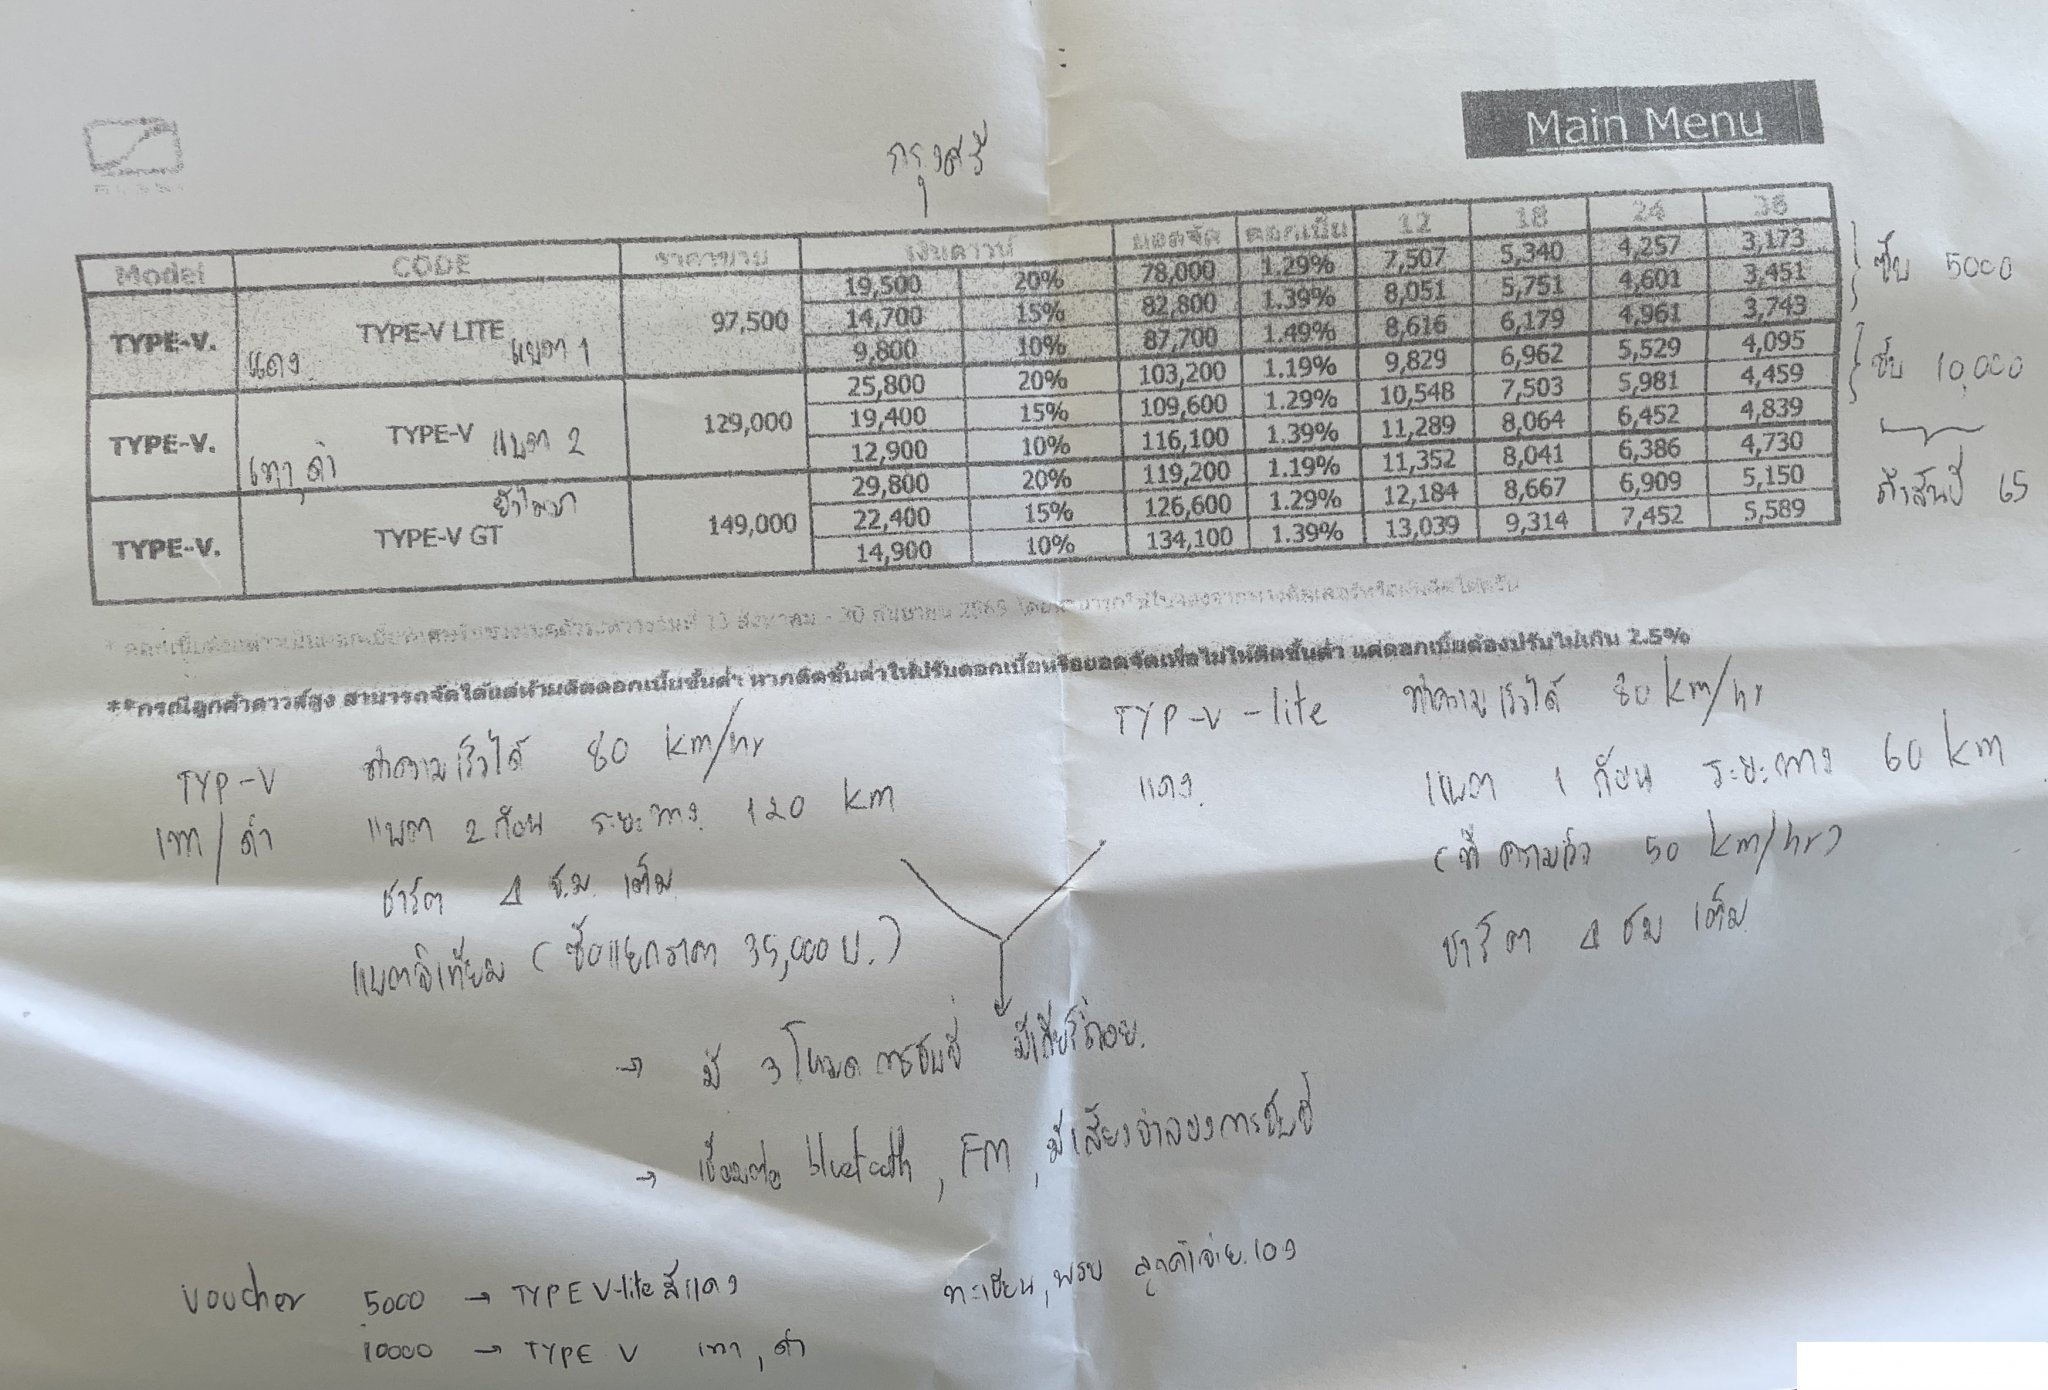 Main Menu
กรุงศรี
Model CODE ราคาขาย เงินดาวน์ ยอดจัด ดอกเบี้ย 12 18 24 36
TYPE-V. TYPE-V LITE 97,500 19,500 20% 78,000 1.29% 7,507 5,340 4,257 3,173
14,700 15% 82,800 1.39% 8,051 5,751 4,601 3,451
9,800 10% 87,700 1.49% 8,616 6,179 4,961 3,743
แดง แบต 1
ซับ 5000
TYPE-V. TYPE-V 129,000 25,800 20% 103,200 1.19% 9,829 6,962 5,529 4,095
19,400 15% 109,600 1.29% 10,548 7,503 5,981 4,459
12,900 10% 116,100 1.39% 11,289 8,064 6,452 4,839
เทา, ดำ แบต 2
ซับ 10,000
TYPE-V. TYPE-V GT 149,000 29,800 20% 119,200 1.19% 11,352 8,041 6,386 4,730
22,400 15% 126,600 1.29% 12,184 8,667 6,909 5,150
14,900 10% 134,100 1.39% 13,039 9,314 7,452 5,589
ยังไม่มา
ถึงสิ้นปี 65
**กรณีลูกค้าดาวน์สูง สามารถจัดได้แต่ห้ามติดดอกเบี้ยขั้นต่ำ หากติดขั้นต่ำให้ปรับดอกเบี้ยหรือยอดจัดเพื่อไม่ให้ติดขั้นต่ำ แต่ดอกเบี้ยต้องปรับไม่เกิน 2.5%
TYP-V ทำความเร็วได้ 80 km/hr
เทา/ดำ แบต 2 ก้อน ระยะทาง 120 km
ชาร์ต 4 ช.ม. เต็ม
แบตลิเทียม (ซื้อแยกราคา 35,000 บ.)
TYP-V-lite ทำความเร็วได้ 80 km/hr
แดง. แบต 1 ก้อน ระยะทาง 60 km
(ที่ความเร็ว 50 km/hr)
ชาร์ต 4 ชม เต็ม
→ มี 3 โหมดการขับขี่ มีเกียร์ถอย.
→ เชื่อมต่อ bluetooth, FM, มีเสียงจำลองการขับขี่
voucher 5000 → TYPE V-lite สีแดง
10000 → TYPE V เทา, ดำ
ทะเบียน, พรบ ลูกค้าจ่ายเอง